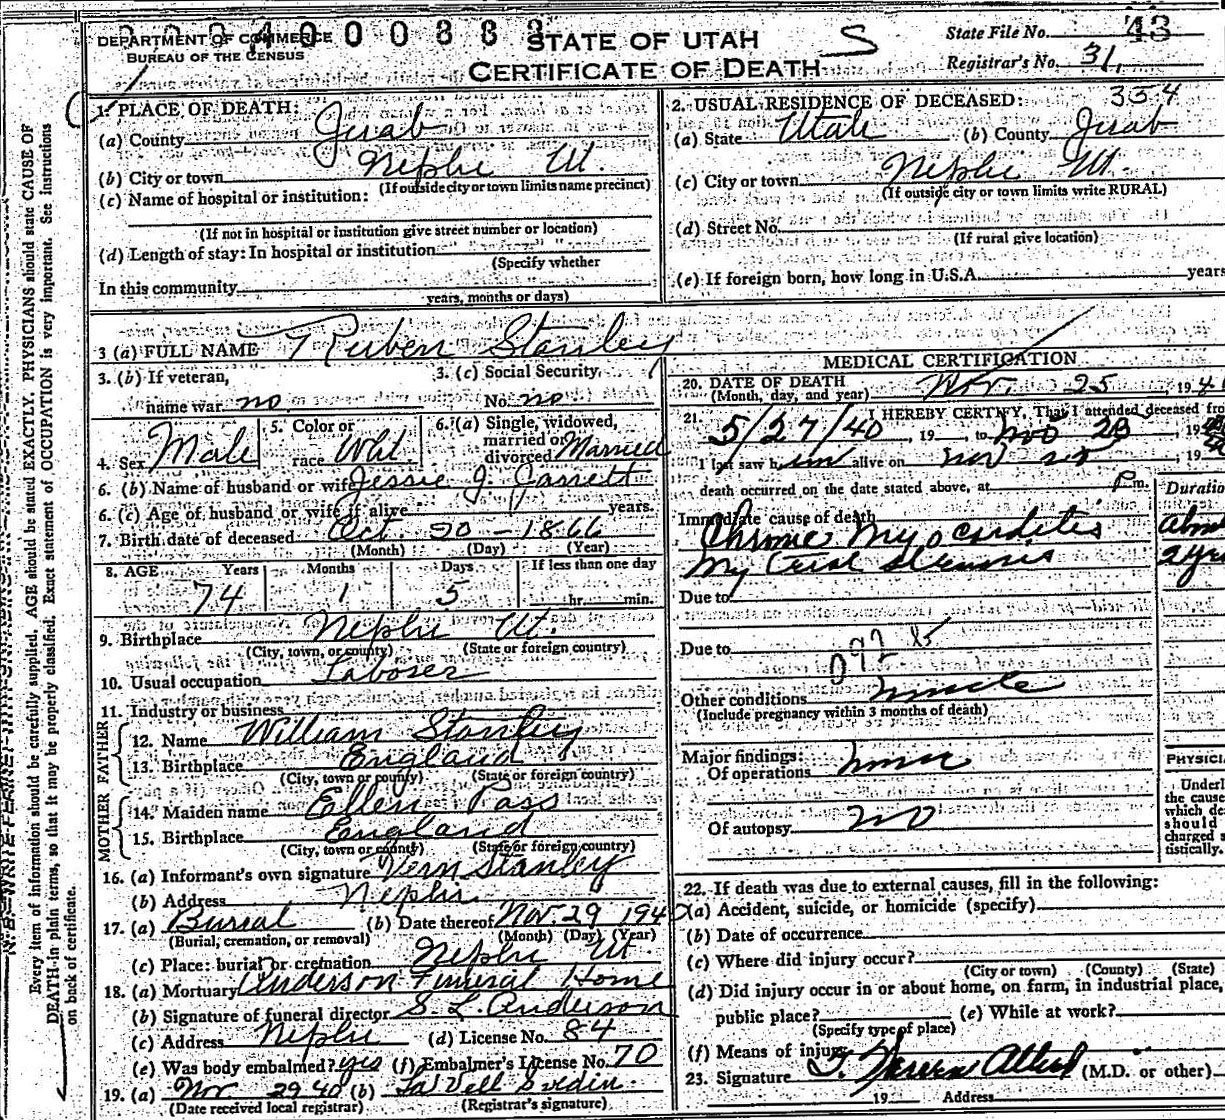 DEPARTMENT OF COMMERCE
BUREAU OF THE CENSUS
STATE OF UTAH
CERTIFICATE OF DEATH
S
State File No. 43
Registrar's No. 31
1. PLACE OF DEATH:
(a) County Juab
(b) City or town Nephi Ut.
(If outside city or town limits name precinct)
(c) Name of hospital or institution:
(If not in hospital or institution give street number or location)
(d) Length of stay: In hospital or institution
(Specify whether
In this community
years, months or days)
2. USUAL RESIDENCE OF DECEASED: 354
(a) State Utah (b) County Juab
(c) City or town Nephi Ut.
(If outside city or town limits write RURAL)
(d) Street No.
(If rural give location)
(e) If foreign born, how long in U.S.A. years
3 (a) FULL NAME Ruben Stanley
3. (b) If veteran,
name war no
3. (c) Social Security
No. no
4. Sex Male
5. Color or
race Wht.
6. (a) Single, widowed,
married or
divorced Married
6. (b) Name of husband or wife Jessie J. Jarrett
6. (c) Age of husband or wife if alive years.
7. Birth date of deceased Oct. 20 - 1866
(Month) (Day) (Year)
8. AGE Years Months Days If less than one day
74 1 5 hr. min.
9. Birthplace Nephi Ut.
(City, town, or county) (State or foreign country)
10. Usual occupation Laborer
11. Industry or business
FATHER
12. Name William Stanley
13. Birthplace England
(City, town or county) (State or foreign country)
MOTHER
14. Maiden name Ellen Pass
15. Birthplace England
(City, town or county) (State or foreign country)
16. (a) Informant's own signature Vern Stanley
(b) Address Nephi
17. (a) Burial (b) Date thereof Nov 29 194
(Burial, cremation, or removal) (Month) (Day) (Year)
(c) Place: burial or cremation Nephi Ut.
18. (a) Mortuary Anderson Funeral Home
(b) Signature of funeral director S L Anderson
(c) Address Nephi (d) License No. 84
(e) Was body embalmed? yes (f) Embalmer's License No. 70
19. (a) Nov 29 40 (b)
(Date received local registrar) (Registrar's signature)
MEDICAL CERTIFICATION
20. DATE OF DEATH Nov. 25, 194
(Month, day, and year)
21. I HEREBY CERTIFY, That I attended deceased fro
5/27/40, 19 to Nov 19
I last saw him alive on Nov 19
death occurred on the date stated above, at P m.
Duratio
Immediate cause of death
Chronic Myocarditis
Mytral stenosis 2 yrs
Due to
Due to
Other conditions
(Include pregnancy within 3 months of death)
Major findings:
Of operations none
Of autopsy no
PHYSICI
Underl
the cause
which de
should
charged s
tistically.
22. If death was due to external causes, fill in the following:
(a) Accident, suicide, or homicide (specify)
(b) Date of occurrence
(c) Where did injury occur?
(City or town) (County) (State)
(d) Did injury occur in or about home, on farm, in industrial place,
public place? (e) While at work?
(Specify type of place)
(f) Means of injury
23. Signature (M.D. or other)
19 Address
Every item of information should be carefully supplied. AGE should be stated EXACTLY. PHYSICIANS should state CAUSE OF
DEATH in plain terms, so that it may be properly classified. Exact statement of OCCUPATION is very important. See instructions
on back of certificate.